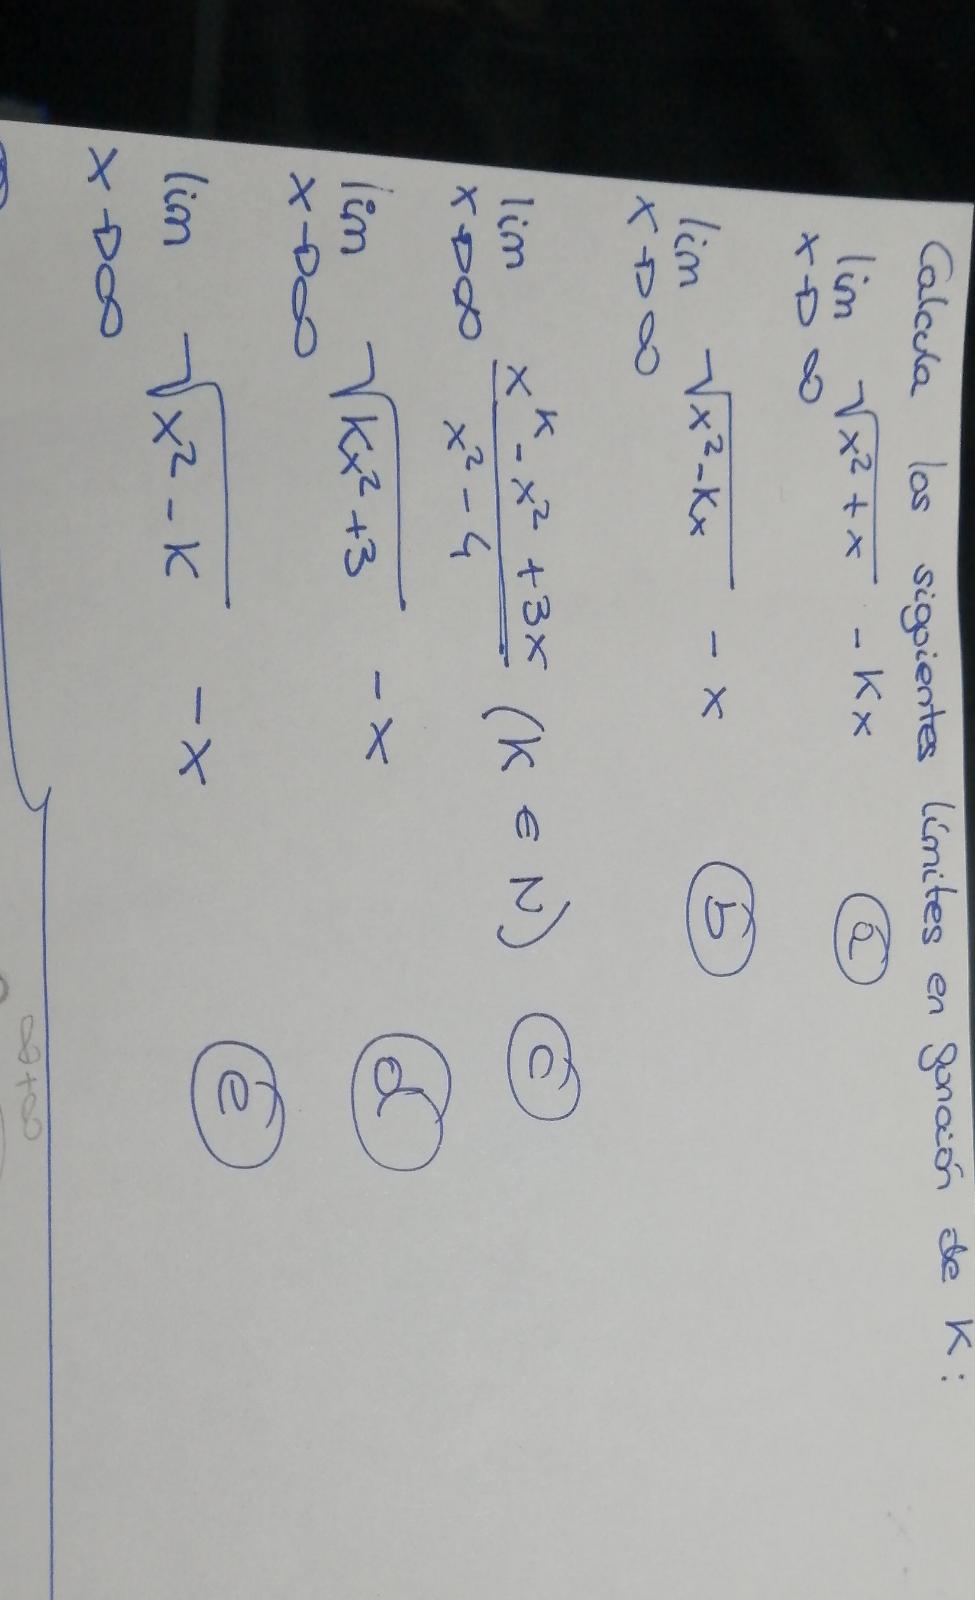 Calcula los siguientes límites en función de K:
lim x→∞ √(x² + x) - Kx (a)
lim x→∞ √(x² - Kx) - x (b)
lim x→∞ (x^K - x² + 3x)/(x² - 4) (K ∈ N) (c)
lim x→∞ √(Kx² + 3) - x (d)
lim x→∞ √(x² - K) - x (e)
∞+∞